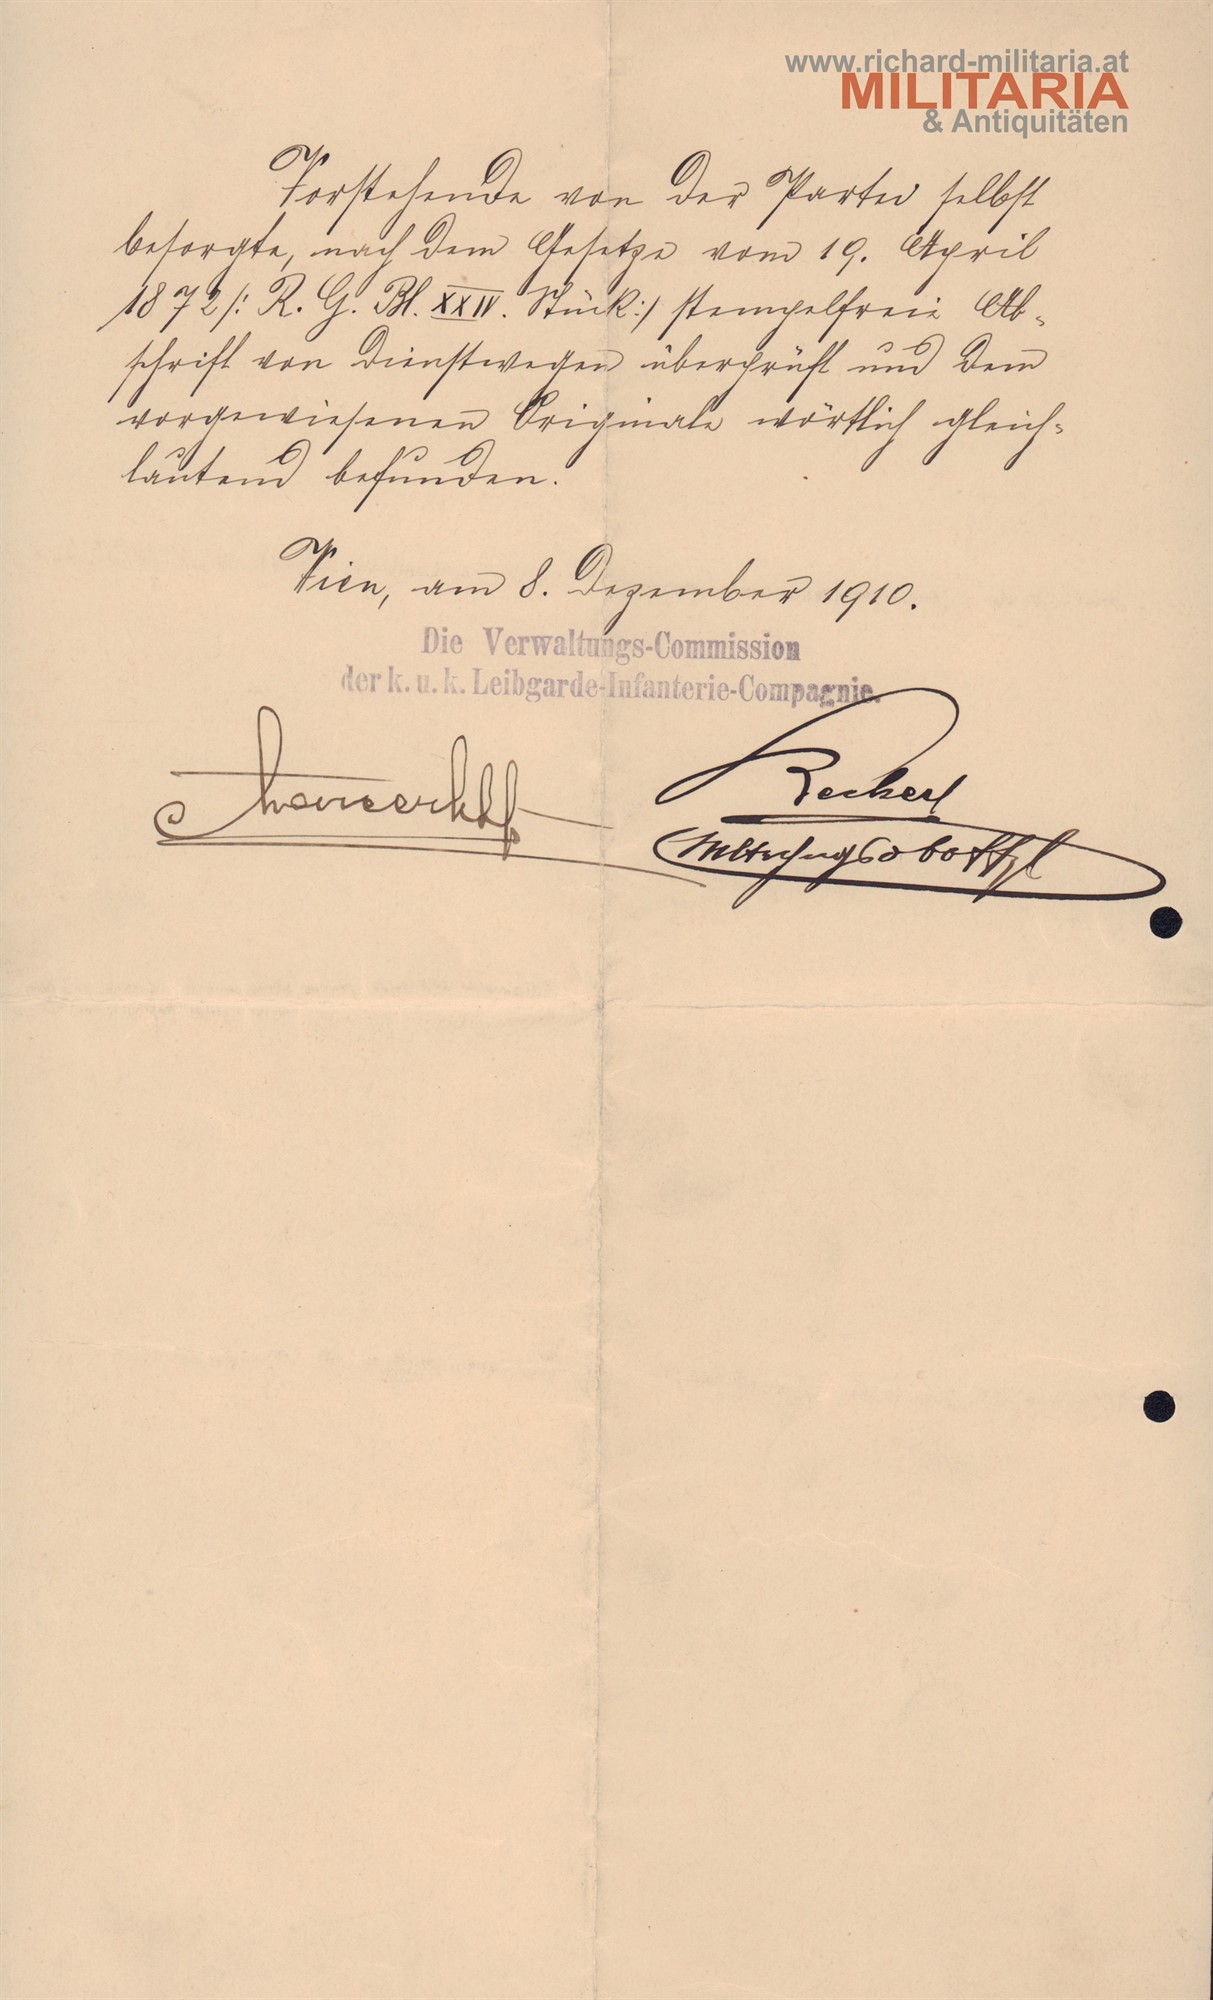 www.richard-militaria.at
MILITARIA
& Antiquitäten
Vorstehende von der Partei selbst
besorgte, nach dem Gesetze vom 19. April
1872/: R. G. Bl. XXIV. Stück:/ stempelfreie Ab=
schrift von Dienstwegen überprüft und dem
vorgewiesenen Originale wörtlich gleich=
lautend befunden.
Wien, am 8. Dezember 1910.
Die Verwaltungs-Commission
der k. u. k. Leibgarde-Infanterie-Compagnie.